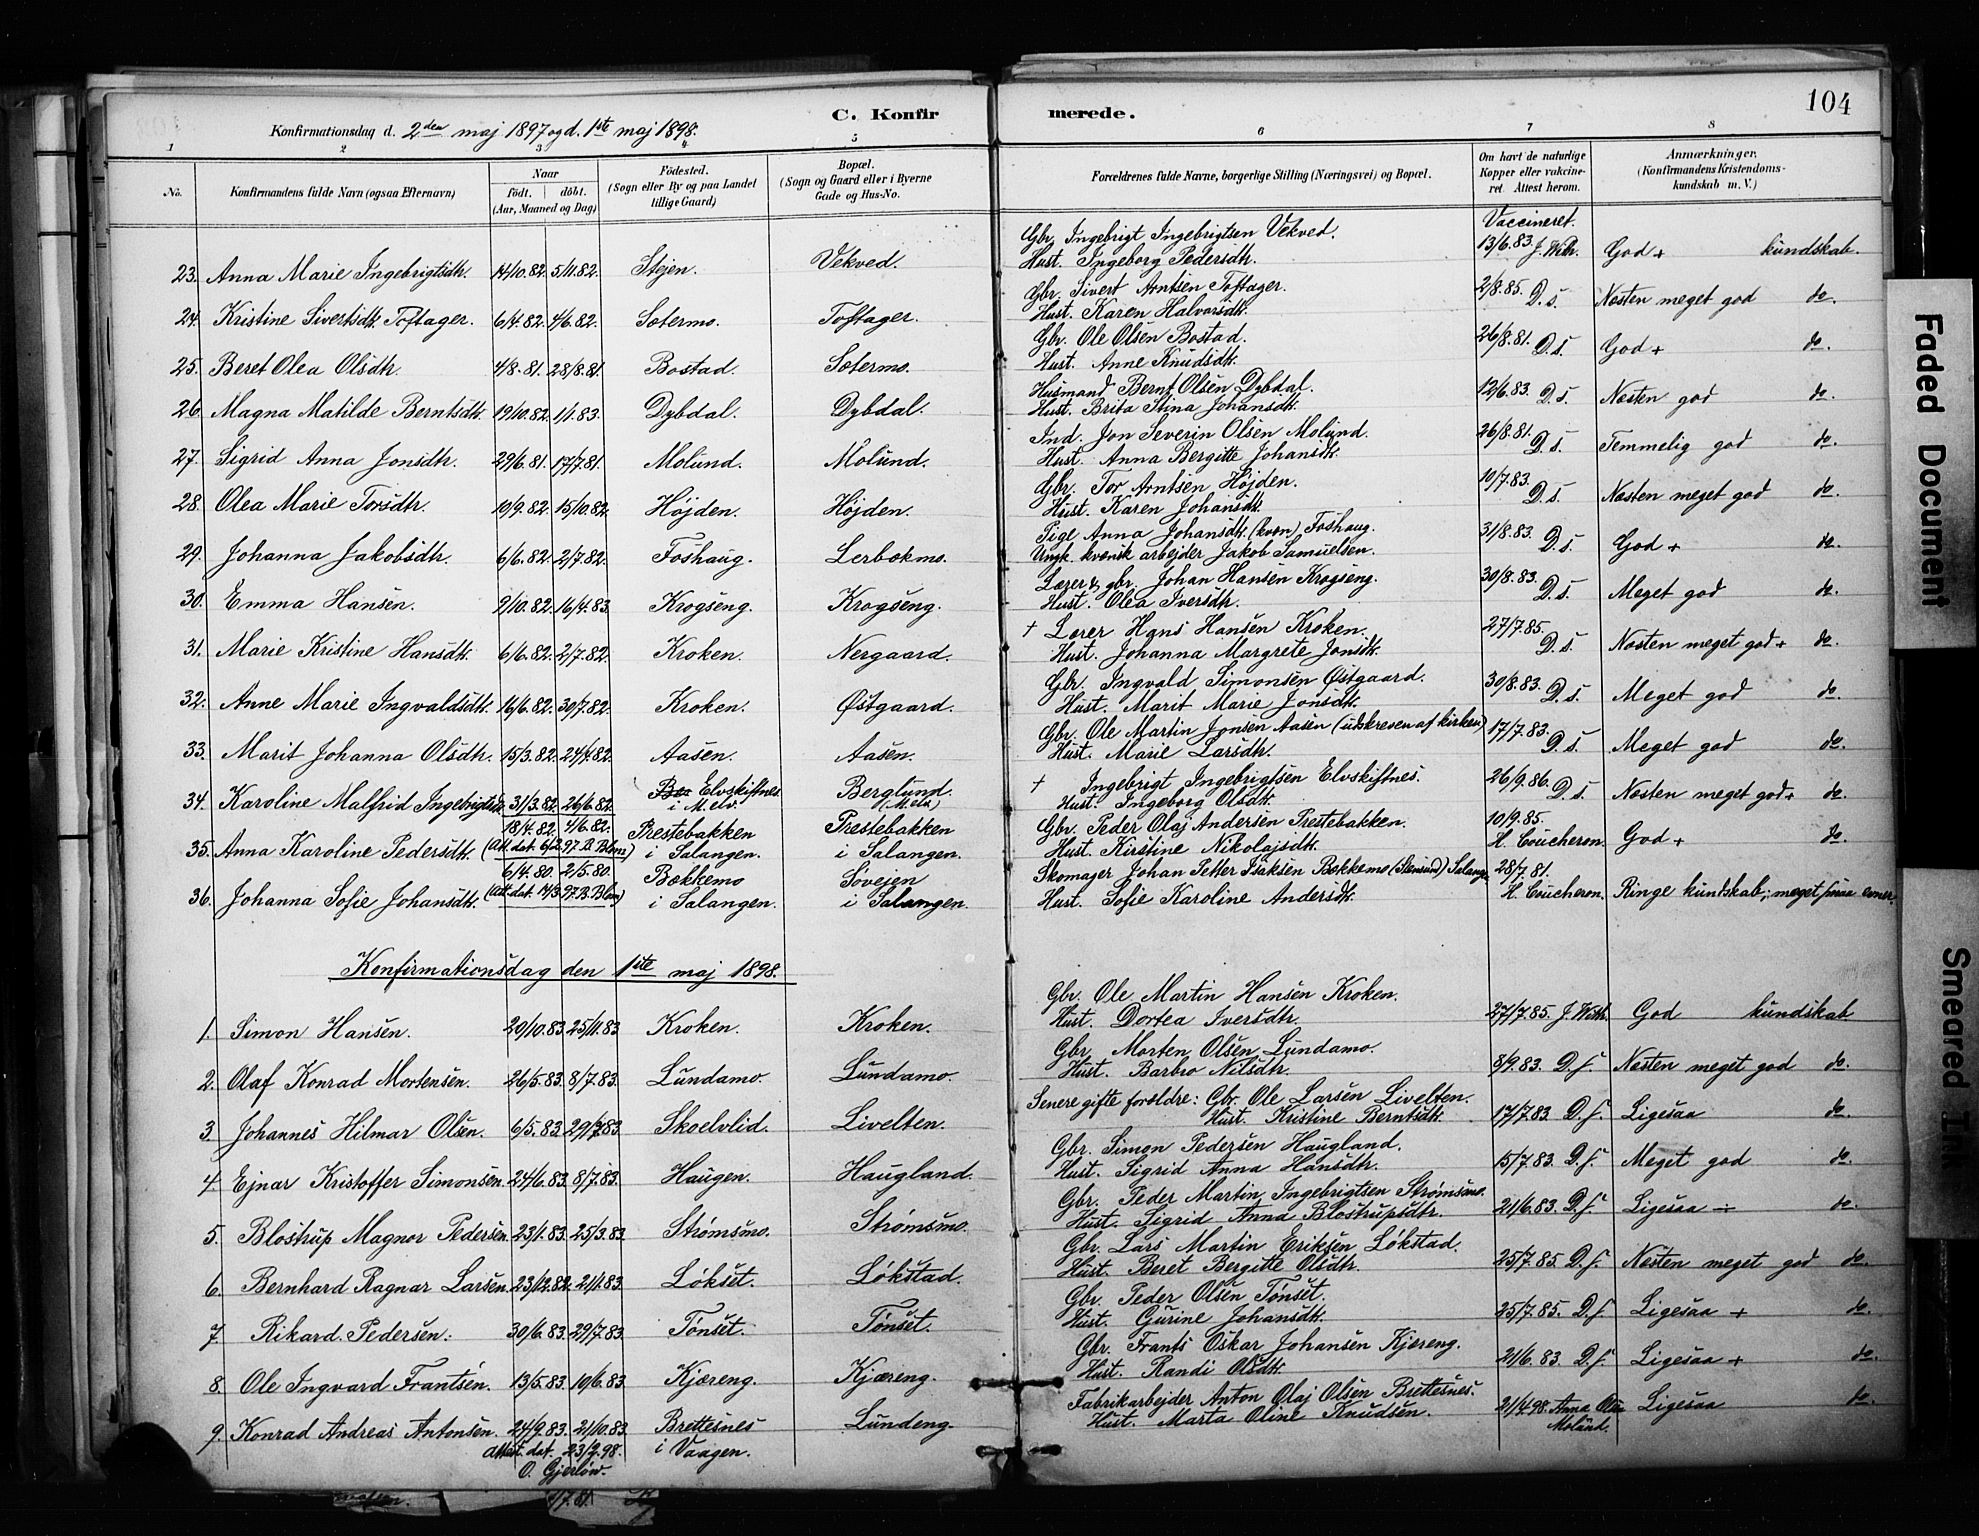 104
C. Konfirmerede.
Konfirmationsdag d. 2den maj 1897 og d. 1ste maj 1898.
1 2 3 4 5 6 7 8
No. Konfirmandens fulde Navn (ogsaa Efternavn) Naar født. døbt. (Aar, Maaned og Dag) Fødested. (Sogn eller By og paa Landet tillige Gaard) Bopæl. (Sogn og Gaard eller i Byerne Gade og Hus-No.
Forældrenes fulde Navne, borgerlige Stilling (Næringsvei) og Bopæl. Om havt de naturlige Kopper eller vakcineret. Attest herom. Anmærkninger. (Konfirmandens Kristendomskundskab m. V.)
Gbr. Ingebrigt Ingebrigtsen Vekved. Vaccineret.
23. Anna Marie Ingebrigtsdtr. 14/10.82. 5/11.82. Stejen. Vekved. Hust. Ingeborg Pedersdtr. 13/6.83. J. Wth. God + kundskab.
Gbr. Sivert Arntsen Toftager.
24. Kristine Sivertsdtr. Toftager. 6/4.82. 4/6.82. Sætermo. Toftager. Hust. Karen Halvorsdtr. 2/8.85. D.s. Næsten meget god do.
Gbr. Ole Olsen Bostad.
25. Beret Olea Olsdtr. 4/8.81. 28/8.81. Bostad. Sætermo. Hust. Anne Knudsdtr. 26/8.81. D.s. God + do.
Husmand Bernt Olsen Dybdal.
26. Magna Matilde Berntsdtr. 19/10.82. 1/1.83. Dybdal. Dybdal. Hust. Brita Stina Johansdtr. 12/6.83. D.s. Næsten god do.
Ind. Jon Severin Olsen Molund.
27. Sigrid Anna Jonsdtr. 29/6.81. 17/7.81. Molund. Molund. Hust. Anna Bergitte Johansdtr. 26/8.81. D.s. Temmelig god do.
Gbr. Tor Arntsen Højden.
28. Olea Marie Torsdtr. 10/9.82. 15/10.82. Højden. Højden. Hust. Karen Johansdtr. 10/7.83. D.s. Næsten meget god do.
Pige Anna Johansdtr. (kvæn) Foshaug.
29. Johanna Jakobsdtr. 6/6.82. 2/7.82. Foshaug. Lerbækmo. Ungk. kvensk arbejder Jakob Samuelsen. 31/8.83. D.s. God + do.
Lærer & gbr. Johan Hansen Krogseng.
30. Emma Hansen. 2/10.82. 16/4.83. Krogseng. Krogseng. Hust. Olea Iversdtr. 30/8.83. D.s. Meget god do.
† Lærer Hans Hansen Kroken.
31. Marie Kristine Hansdtr. 6/6.82. 2/7.82. Kroken. Nergaard. Hust. Johanna Margrete Jonsdtr. 27/7.85. D.s. Næsten meget god + do.
Gbr. Ingvald Simonsen Østgaard.
32. Anne Marie Ingvaldsdtr. 16/6.82. 30/7.82. Kroken. Østgaard. Hust. Marit Marie Jonsdtr. 30/8.83. D.s. Meget god do.
Gbr. Ole Martin Jonsen Aasen (udskreven af kirken)
33. Marit Johanna Olsdtr. 15/3.82. 24/4.82. Aasen. Aasen. Hust. Marie Larsdtr. 17/7.83. D.s. Meget god do.
† Ingebrigt Ingebrigtsen Elvskiftnes.
34. Karoline Malfrid Ingebrigtsdtr. 31/3.82. 26/6.82. Elvskiftnes i M.elv. Berglund (M.elv.) Hust. Ingeborg Olsdtr. 26/9.86. D.s. Næsten meget god + do.
18/4.82. 4/6.82. Prestebakken Prestebakken Gbr. Peder Olaj Andersen Prestebakken. 10/9.85.
35. Anna Karoline Pedersdtr. (Att. dat. 6/2.97. B. Blom) i Salangen. i Salangen. Hust. Kirstine Nikolajsdtr. H. Coucheron. God + do.
6/4.80. 2/5.80. Bækkemo Søvejen Skomager Johan Petter Isaksen Bækkemo (Stensund) Salangn. 28/7.81.
36. Johanna Sofie Johansdtr. (Att. dat. 14/3.97. B. Blom) i Salangen. i Salangen. Hust. Sofie Karoline Andersdtr. H. Coucheron. Ringe kundskab; meget smaa evner.
Konfirmationsdag den 1ste maj 1898.
Gbr. Ole Martin Hansen Kroken.
1. Simon Hansen. 20/10.83. 25/11.83 Kroken. Kroken. Hust. Dortea Iversdtr. 27/7.85. J. Wth. God kundskab
Gbr. Morten Olsen Lundamo.
2. Olaf Konrad Mortensen. 26/5.83. 8/7.83. Lundamo. Lundamo. Hust. Barbro Nilsdtr. 8/9.83. D.s. Næsten meget god do.
Senere gifte forældre: Gbr. Ole Larsen Livelten.
3. Johannes Hilmar Olsen. 6/5.83. 29/7.83 Skoelvlid. Livelten. Hust. Kristine Berntsdtr. 17/7.83. D.s. Ligesaa do.
Gbr. Simon Pedersen Haugland.
4. Ejnar Kristoffer Simonsen. 24/6.83. 8/7.83. Haugen. Haugland. Hust. Sigrid Anna Hansdtr. 15/7.83. D.s. Meget god do.
Gbr. Peder Martin Ingebrigtsen Strømsmo.
5. Blostrup Magnor Pedersen. 23/1.83. 25/3.83. Strømsmo. Strømsmo. Hust. Sigrid Anna Blostrupsdtr. 21/6.83. D.s. Ligesaa ÷ do.
Gbr. Lars Martin Eriksen Løkstad.
6. Bernhard Ragnar Larsen. 23/12.82. 21/1.83. Løkset. Løkstad. Hust. Beret Bergitte Olsdtr. 25/7.85. D.s. Næsten meget god do.
Gbr. Peder Olsen Tønset.
7. Rikard Pedersen. 30/6.83. 29/7.83. Tønset. Tønset. Hust. Gurine Johansdtr. 25/7.85. D.s. Ligesaa + do.
Gbr. Frants Oskar Johansen Kjæreng.
8. Ole Ingvard Frantsen. 13/5.83. 10/6.83. Kjæreng. Kjæreng. Hust. Randi Olsdtr. 21/6.83. D.s. Ligesaa + do.
Fabrikarbejder Anton Olaj Olsen Brettesnes.
9. Konrad Andreas Antonsen. 24/9.83. 21/10.83. Brettesnes Lundeng. Hust. Marta Oline Knudsen. 21/4.98. Anna Ligesaa do.
Attest. dat. 23/2.98. i Vaagen. Molund.
O. Gjerløw.
Faded Document
Smeared Ink